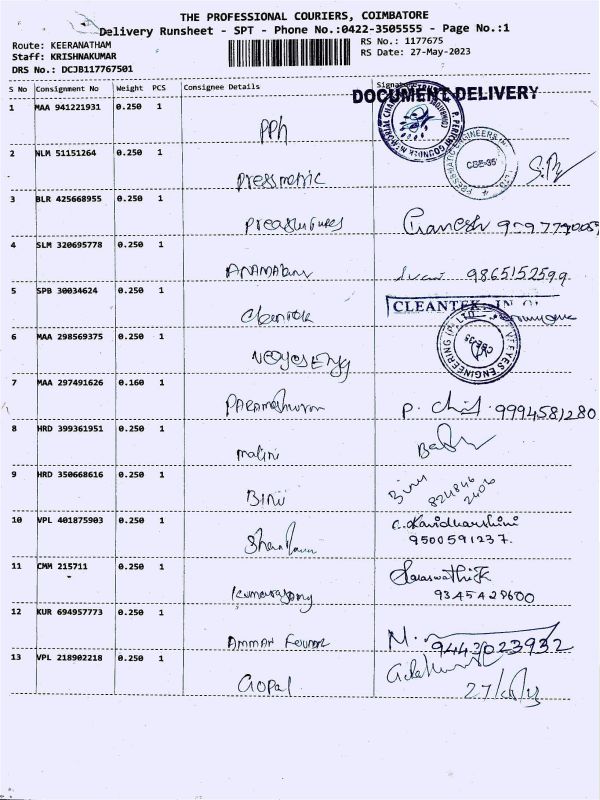 THE PROFESSIONAL COURIERS, COIMBATORE
Delivery Runsheet - SPT - Phone No.:0422-3505555 - Page No.:1
Route: KEERANATHAM RS No.: 1177675
Staff: KRISHNAKUMAR RS Date: 27-May-2023
DRS No.: DCJB117767501
S No Consignment No Weight PCS Consignee Details
DOCUMENT DELIVERY
1 MAA 941221931 0.250 1 PPh
2 NLM 51151264 0.250 1 Pressmetric
CBE-35
3 BLR 425668955 0.250 1 Ganesh
4 SLM 320695778 0.250 1 9865152599
5 SPB 30034624 0.250 1
CLEANTEK
6 MAA 298569375 0.250 1
ENGINEERING (P) LTD
7 MAA 297491626 0.160 1 P. 9994581280
8 HRD 399361951 0.250 1 malini
9 HRD 350668616 0.250 1 Binu
10 VPL 401875903 0.250 1 C. Kavidharshini
9500591237.
11 CMM 215711 0.250 1 Kumarasamy Saraswathi K
9345429600
12 KUR 694957773 0.250 1 AMMAN M.
9443023932
13 VPL 218902218 0.250 1 Gopal